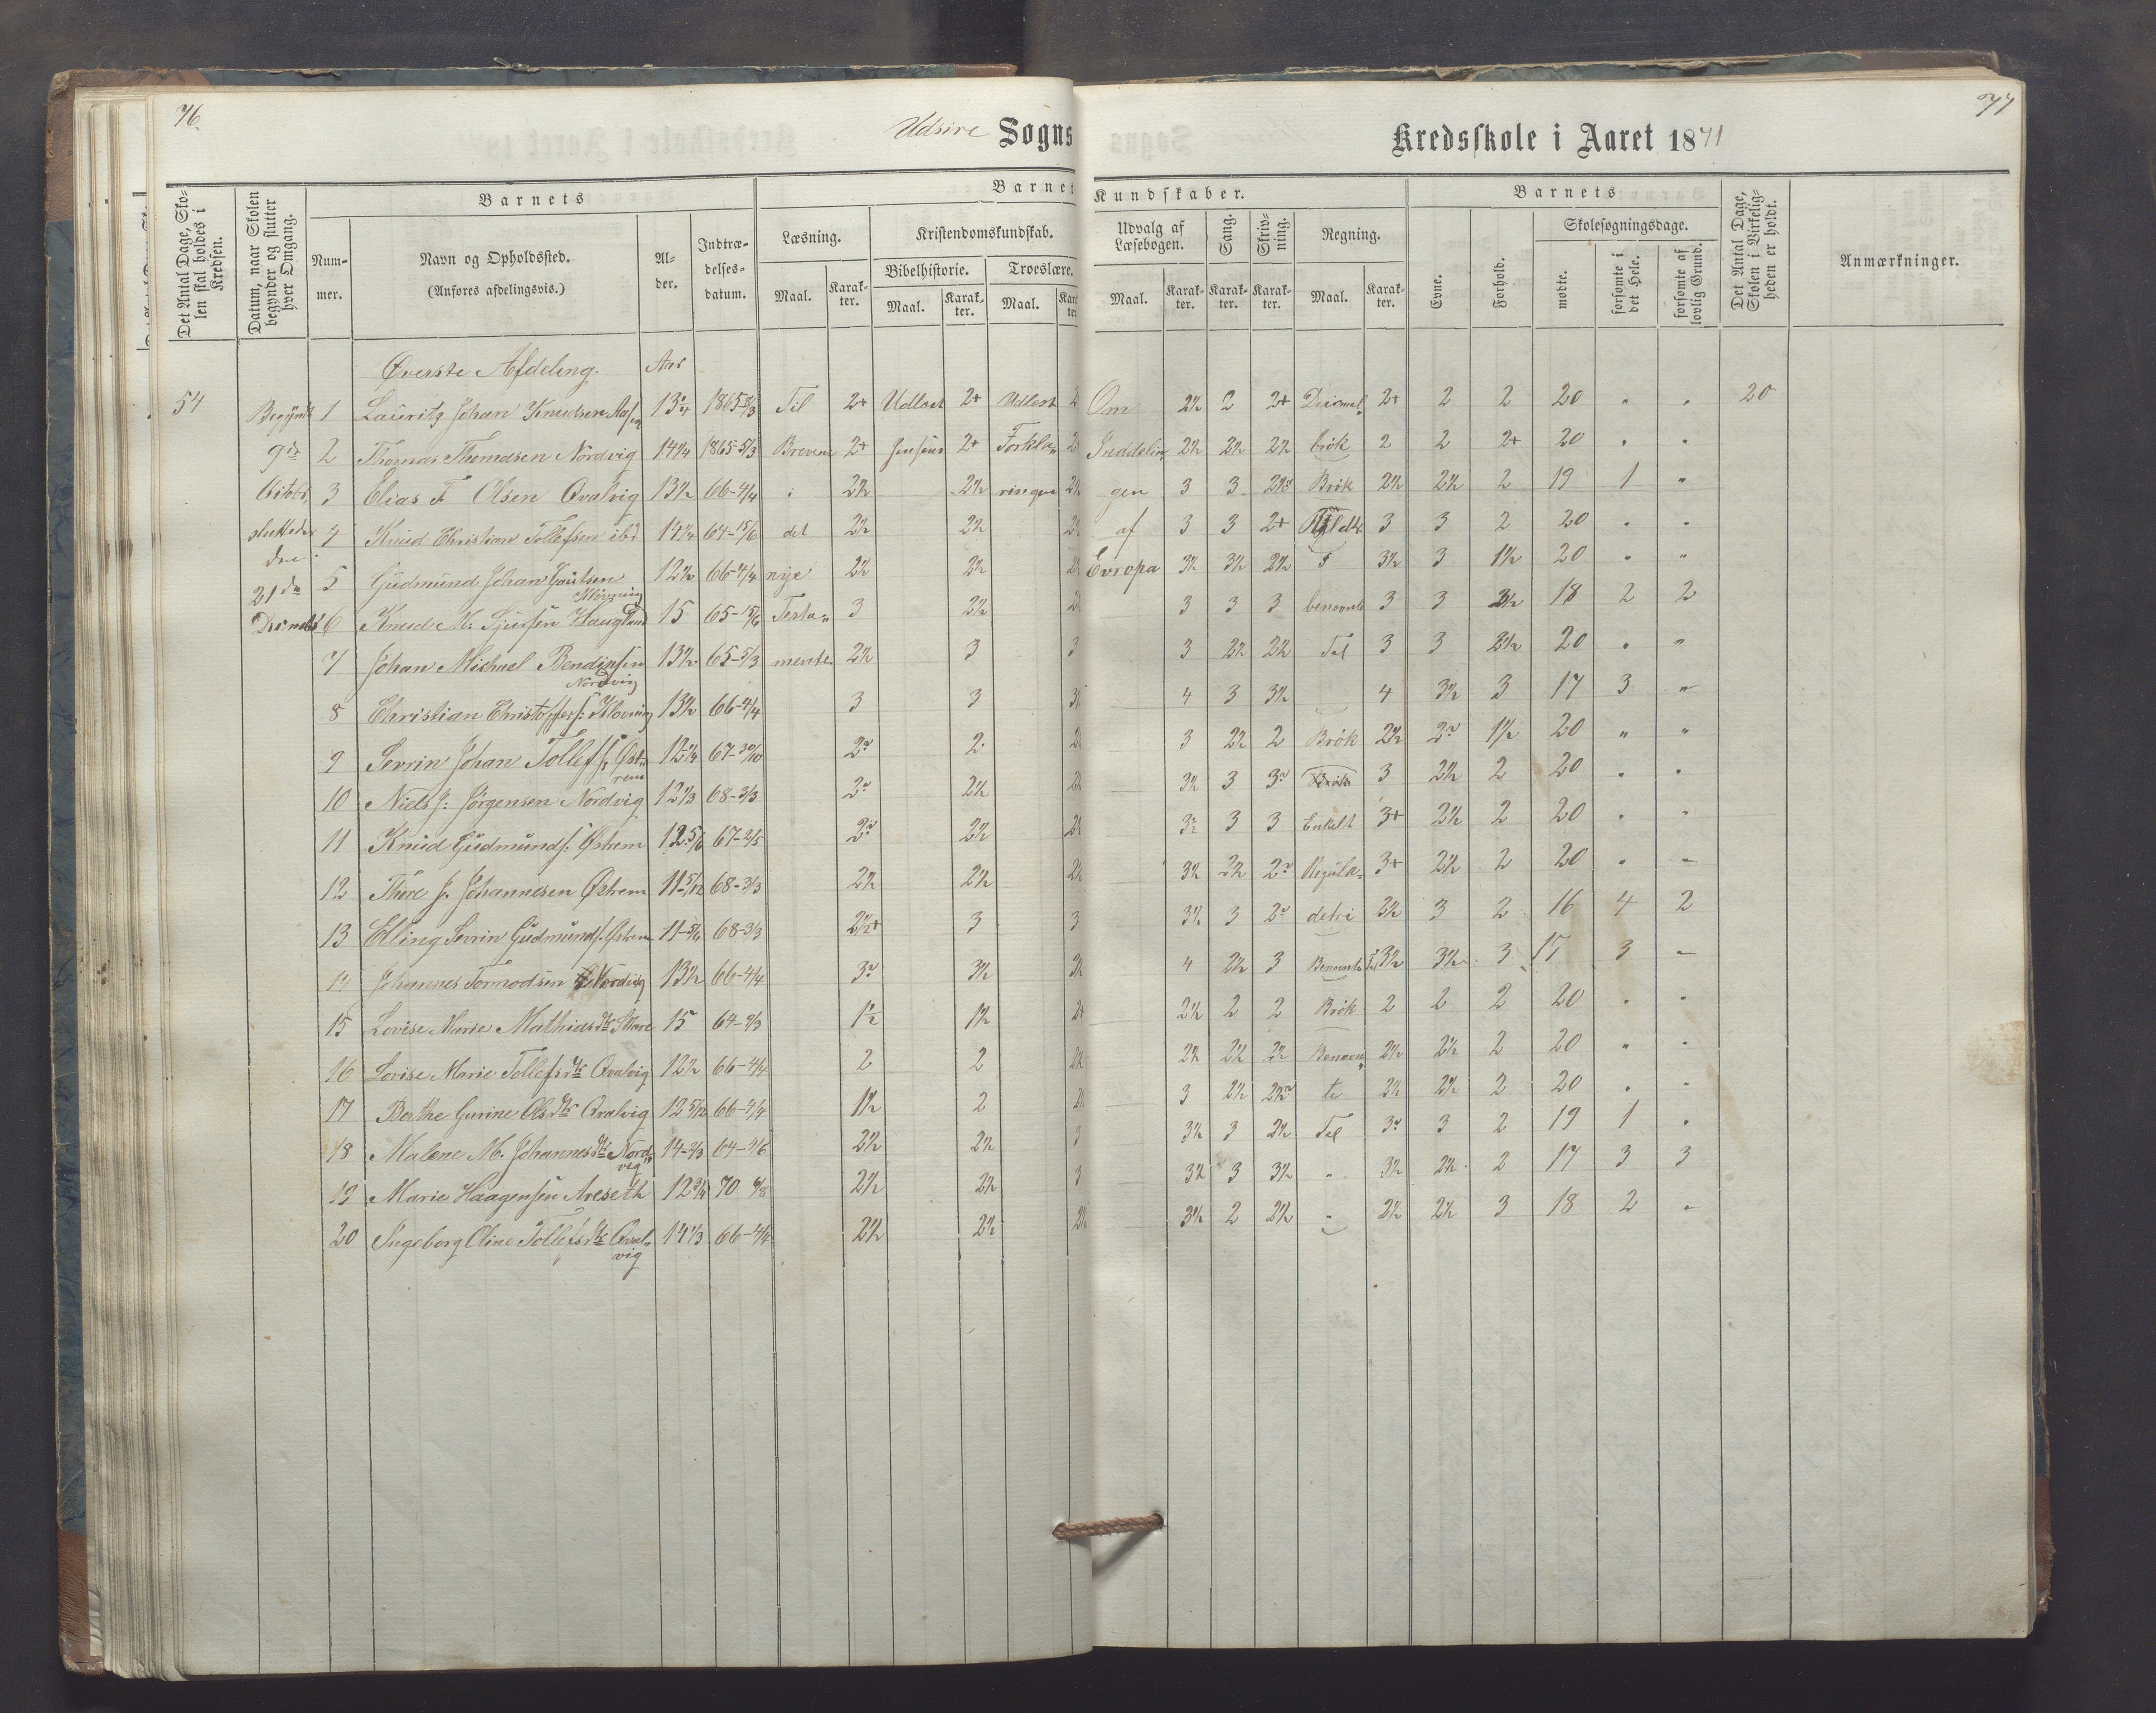 76.
Udsire Sogns
Kredsskole i Aaret 1871
77
Det Antal Dage, Skolen skal holdes i Kredsen.
Datum, naar Skolen begynder og slutter hver Omgang.
Barnets
Nummer.
Navn og Opholdssted.
(Anføres afdelingsvis.)
Alder.
Indtrædelsesdatum.
Barnets Kundskaber.
Læsning.
Maal. Karakter.
Kristendomskundskab.
Bibelhistorie.
Maal. Karakter.
Troeslære.
Maal. Karakter.
Udvalg af Læsebogen.
Maal. Karakter.
Sang.
Karakter.
Skrivning.
Karakter.
Regning.
Maal. Karakter.
Barnets
Evne.
Forhold.
Skolesøgningsdage.
mødte.
forsømte i det Hele.
forsømte af lovlig Grund.
Det Antal Dage, Skolen i Virkeligheden er holdt.
Anmærkninger.
Øverste Afdeling. Aar
54 Begyndt 1 Lauritz Johan Knudsen 13 3/4 1865 Til 2+ Udlært 2+ Udlært 2 Om 2½ 2 2+ Decimal„ 2+ 2 2 20 „ „ 20
9de 2 Thomas Thomasen Nordvig 14¼ 1865-5/3 Brevene 2+ Jensens 2+ Forkla„ Inddelin 2½ 2½ 2½ brøk 2 2 2+ 20 „ „
3 Elias F. Olsen Qvalvig 13½ 66-4/4 i 2½ 2½ ringen gen 3 3 Brøk 2½ 2½ 2 19 1 „
4 Knud Christian Tollefsen ibd 14¼ 64-15/6 det 2½ 2½ af 3 3 2+ 3 3 2 20 „ „
21de 5 Gudmund Johan Klovning 12½ 66-4/4 nye 2½ 2½ Evropa 3½ 3½ 2½ 3½ 3 1½ 20 „ „
6 Knud M. Sjursen Haugland 15 65-15/6 Testa„ 3 2½ 3 3 3 benævnte 3 3 2½ 18 2 2
7 Johan Michael Bendiksen Nordvig 13½ 65-5/3 mente 2½ 3 3 3 2½ 2½ Tal 3 3 2½ 20 „ „
8 Christian Christoffers: Klovning 13½ 66-4/4 3 3 4 3 3½ 4 3½ 3 17 3 „
9 Sevrin Johan Tollefs: Østrem 12¼ 67-30/10 2 3 2½ 2 Brøk 2½ 1½ 20 „ „
10 Niels J: Jørgensen Nordvig 12⅓ 68-3/3 2½ 3½ 3 Brøk 3 2½ 2 20 „ „
11 Knud Gudmunds: Østrem 12 5/6 67-2/5 2½ 3½ 3 3 Enkelt 3+ 2½ 2 20 „ „
12 Thore J. Johannesen Østrem 11 5/12 68-3/3 2½ 2½ 2½ 3½ 2½ Regula„ 3+ 2½ 2 20 „ „
13 Elling Sevrin Gudmunds. Østrem 11-5/6 68-3/3 2½+ 3 3 3½ 3 detri 2½ 3 2 16 4 2
14 Johannes Tormodsen Nordvig 13½ 66-4/4 3½ 4 2½ 3 3½ 3½ 3 17 3 „
15 Lovise Marie Mathiasdtr 15 64-9/3 1½ 1½ 2+ 2½ 2 2 Brøk 2 2 2 20 „ „
16 Lovise Marie Tollefsdtr Qvalvig 12½ 66-4/4 2 2 2½ 2½ 2½ 2½ Benævn„ 2½ 2½ 2 20 „ „
17 Berthe Gurine Olsdtr Qvalvig 12 5/12 66-4/4 1½ 2 3 2½ te 2½ 2½ 2 20 „ „
18 Malene M. Johannesdtr Nordvig 14-2/3 64 2½ 2½ 3 3½ 3 2½ Tal 3 2 19 1 „
19 Marie Haagensen Areseth 12¾ 70 2½ 2½ 3 3½ 3 3½ „ 3½ 2½ 2 17 3 3
20 Ingeborg Oline Tollefsdtr Qvalvig 14⅓ 66-4/4 2½ 2½ 3½ 2 2½ „ 2½ 2½ 3 18 2 „